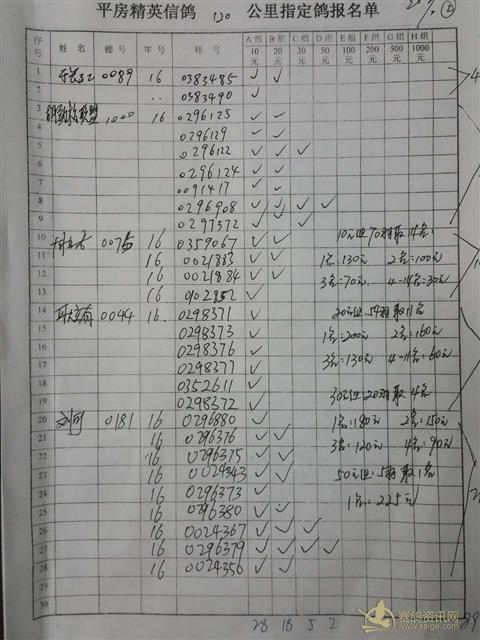 平房精英信鸽 120 公里指定鸽报名单
序号 姓名 棚号 年号 环号 A组10元 B组20元 C组30元 D组50元 E组100元 F组200元 G组500元 H组1000元
1 0089 16 0383485 ✓ ✓
2 0383490 ✓
3 1000 16 0296125 ✓ ✓
4 0296129 ✓ ✓
5 0296122 ✓ ✓ ✓
6 0296124 ✓ ✓
7 0091417 ✓ ✓
8 0296908 ✓ ✓ ✓ ✓
9 0297372 ✓ ✓
10 0075 16 0359067 ✓ ✓ 10元组70羽取14名:
11 16 0021883 ✓ ✓ 1名:130元 2名:100元
12 16 0021884 ✓ ✓ 3名:70元 4-14名:30元
13 16 0102852 ✓
14 0044 16 0298371 ✓ 20元组:54羽取11名
15 0298373 ✓ 1名:200元 2名:160元
16 0298376 ✓
17 0298377 ✓ 3名:130元 4-11名:60元
18 0352611 ✓
19 0298372 ✓ 30元组:20羽取4名
20 0181 16 0296880 ✓ 1名:180元 2名:150元
21 16 0296376 ✓ ✓ 3名:120元 4名:90元
22 16 0296375 ✓ ✓
23 16 0024343 ✓ ✓ 50元组:5羽取1名
24 16 0296373 ✓
25 16 0296380 ✓ ✓ 1名:225元
26 16 0024367 ✓ ✓ ✓
27 16 0296379 ✓ ✓ ✓ ✓
28 16 0024356 ✓ ✓
29
30
28 18 5 2
赛鸽资讯网
www.saige.com